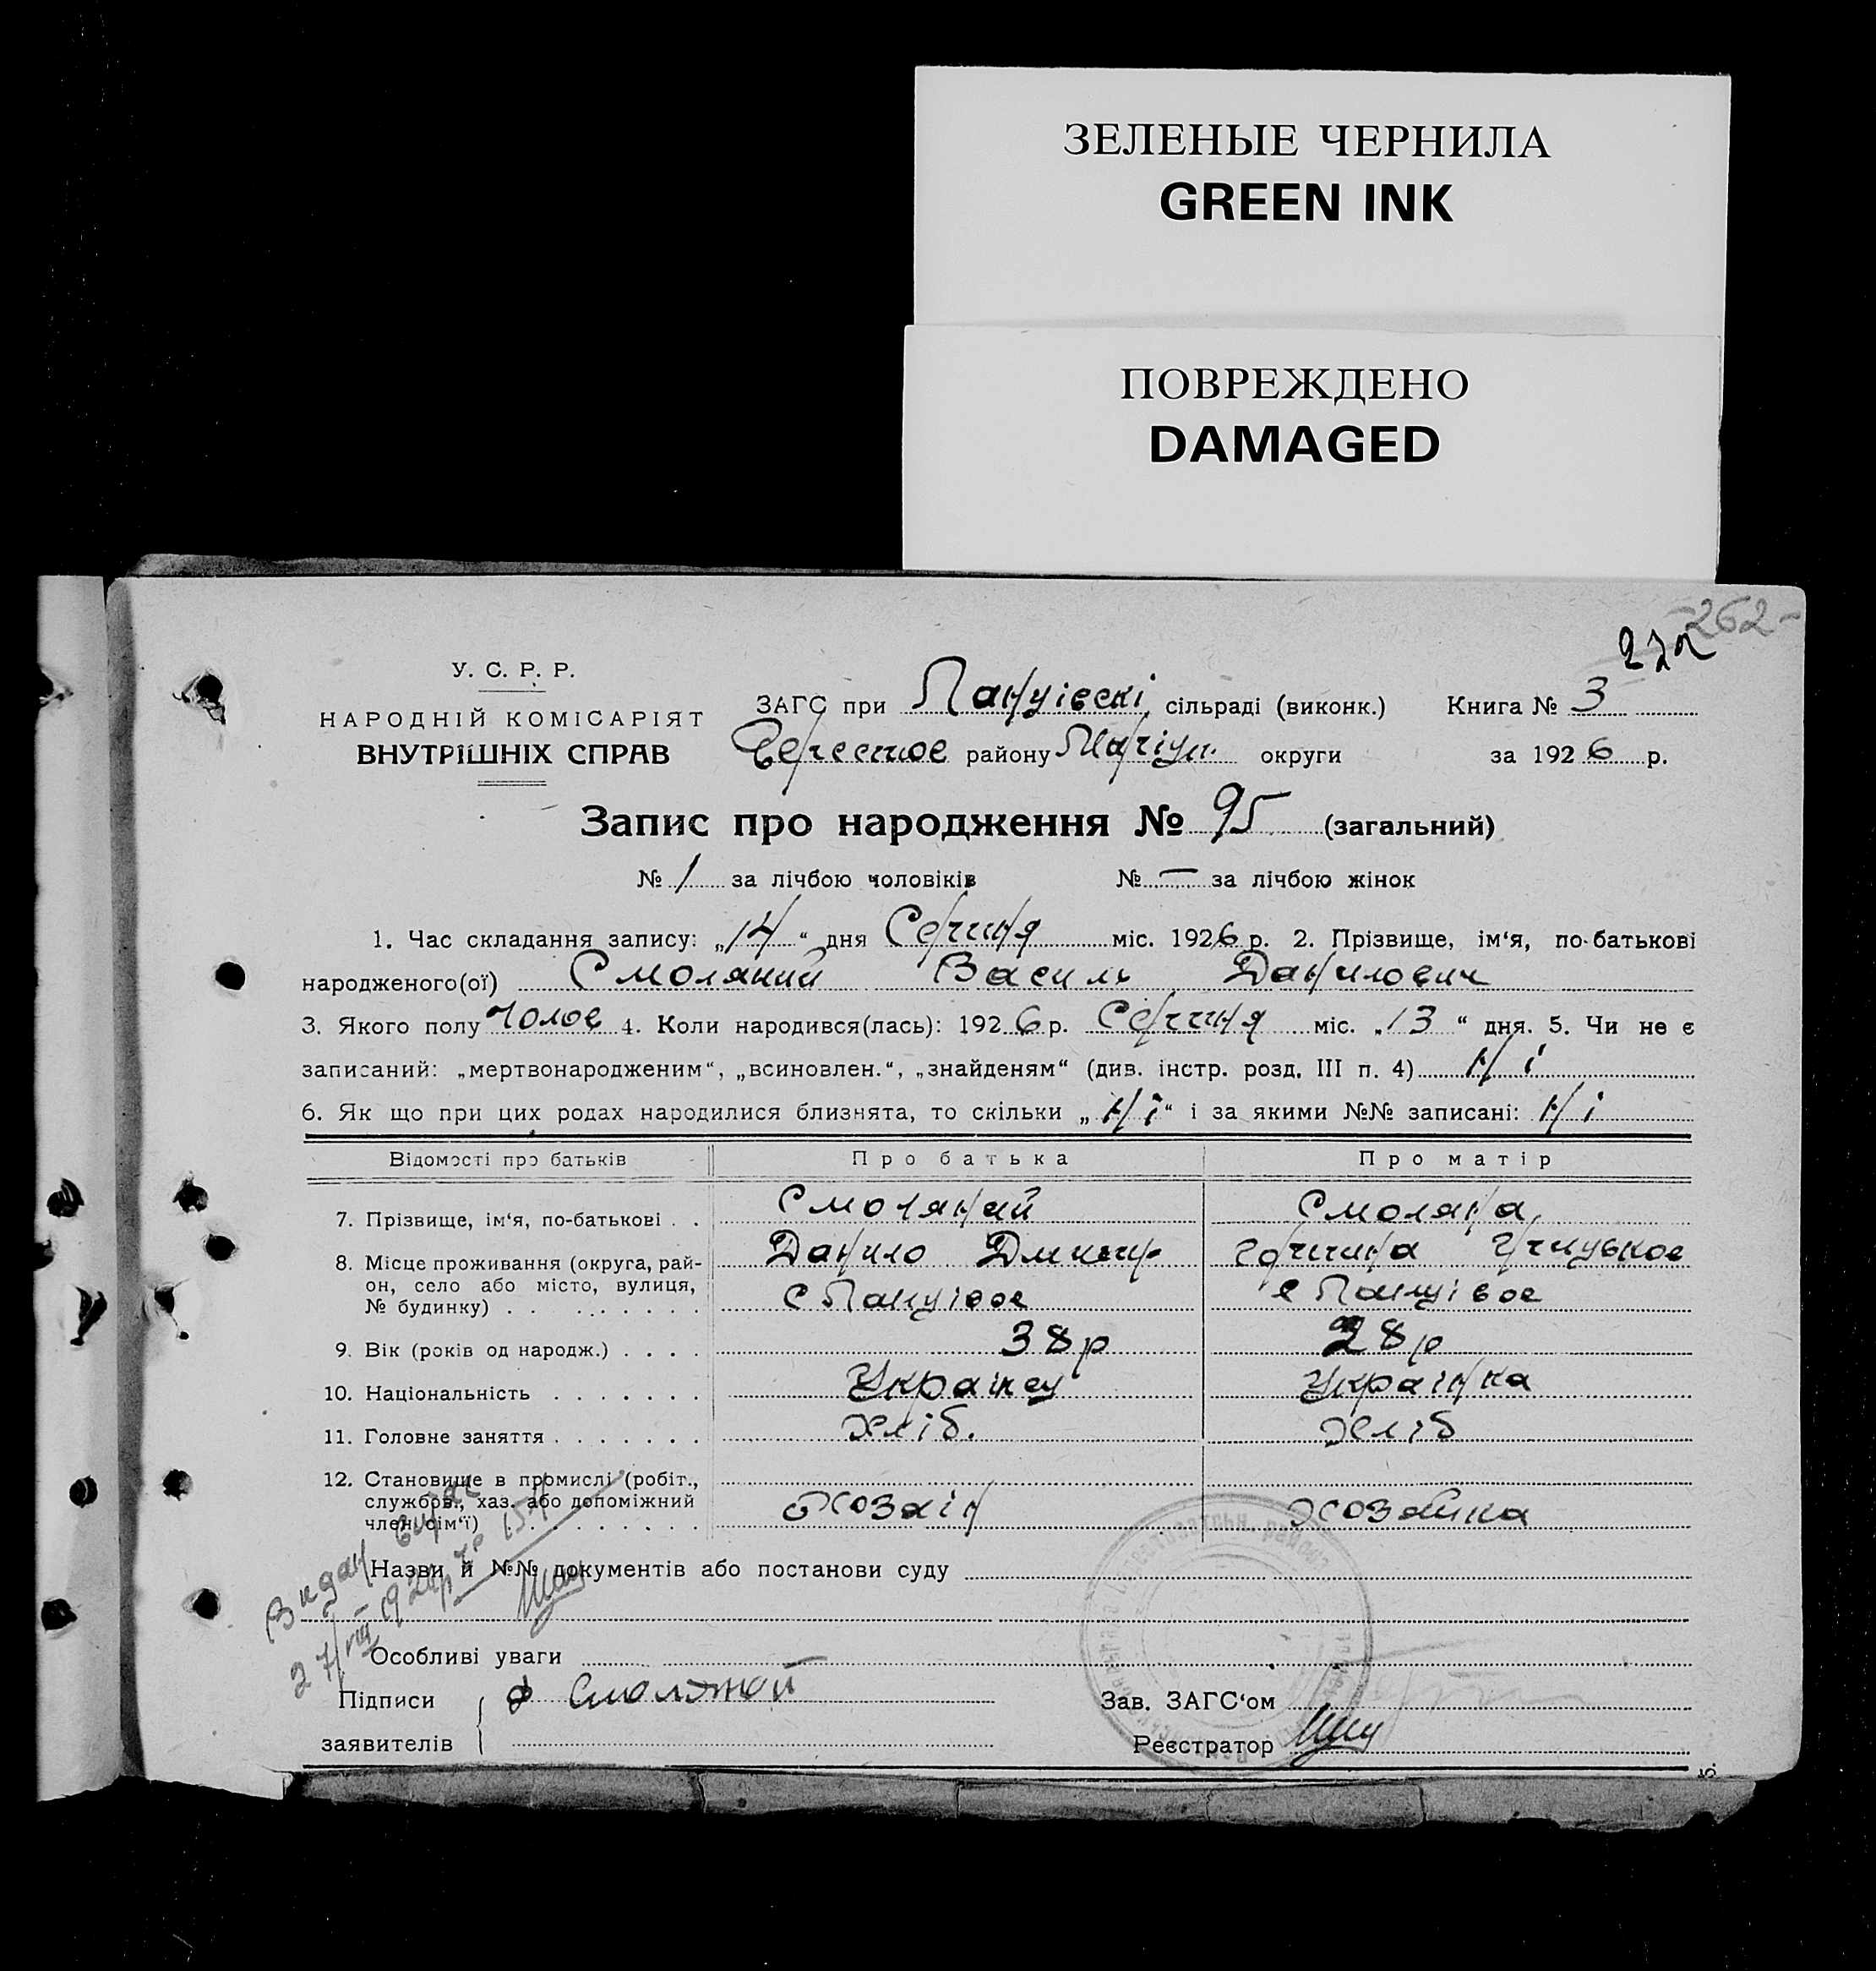 ЗЕЛЕНЫЕ ЧЕРНИЛА
GREEN INK
ПОВРЕЖДЕНО
DAMAGED
-262-
У. С. Р. Р.
НАРОДНІЙ КОМІСАРІЯТ
ВНУТРІШНІХ СПРАВ
ЗАГС при сільраді (виконк.) Книга № 3
району Маріуп. округи за 1926 р.
Запис про народження № 95 (загальний)
№ 1 за лічбою чоловіків № — за лічбою жінок
1. Час складання запису: „14“ дня Серпня міс. 1926 р. 2. Прізвище, ім‘я, по-батькові
народженого(ої) Смоляний Василь Данилович
3. Якого полу Чолов 4. Коли народився(лась): 1926 р. Серпня міс. „13“ дня. 5. Чи не є
записаний: „мертвонародженим“, „всиновлен.“, „знайденям“ (див. інстр. розд. III п. 4) Ні
6. Як що при цих родах народилися близнята, то скільки „Ні“ і за якими №№ записані: Ні
Відомості про батьків Про батька Про матір
7. Прізвище, ім‘я, по-батькові . . Смоляний Смоляна
8. Місце проживання (округа, район, село або місто, вулиця, № будинку) . . Данило
9. Вік (років од народж.) . . . . 38 р 28 р
10. Національність . . . . . . . Українец Українка
11. Головне заняття . . . . . . . Хліб. Хліб
12. Становище в промислі (робіт., службов., хаз. або допоміжний член сім‘ї) . . . . . . . Хозаін Хозайка
Назви й №№ документів або постанови суду
Видан
27/VIII 192
Особливі уваги
Підписи
заявителів
Зав. ЗАГС‘ом
Реєстратор